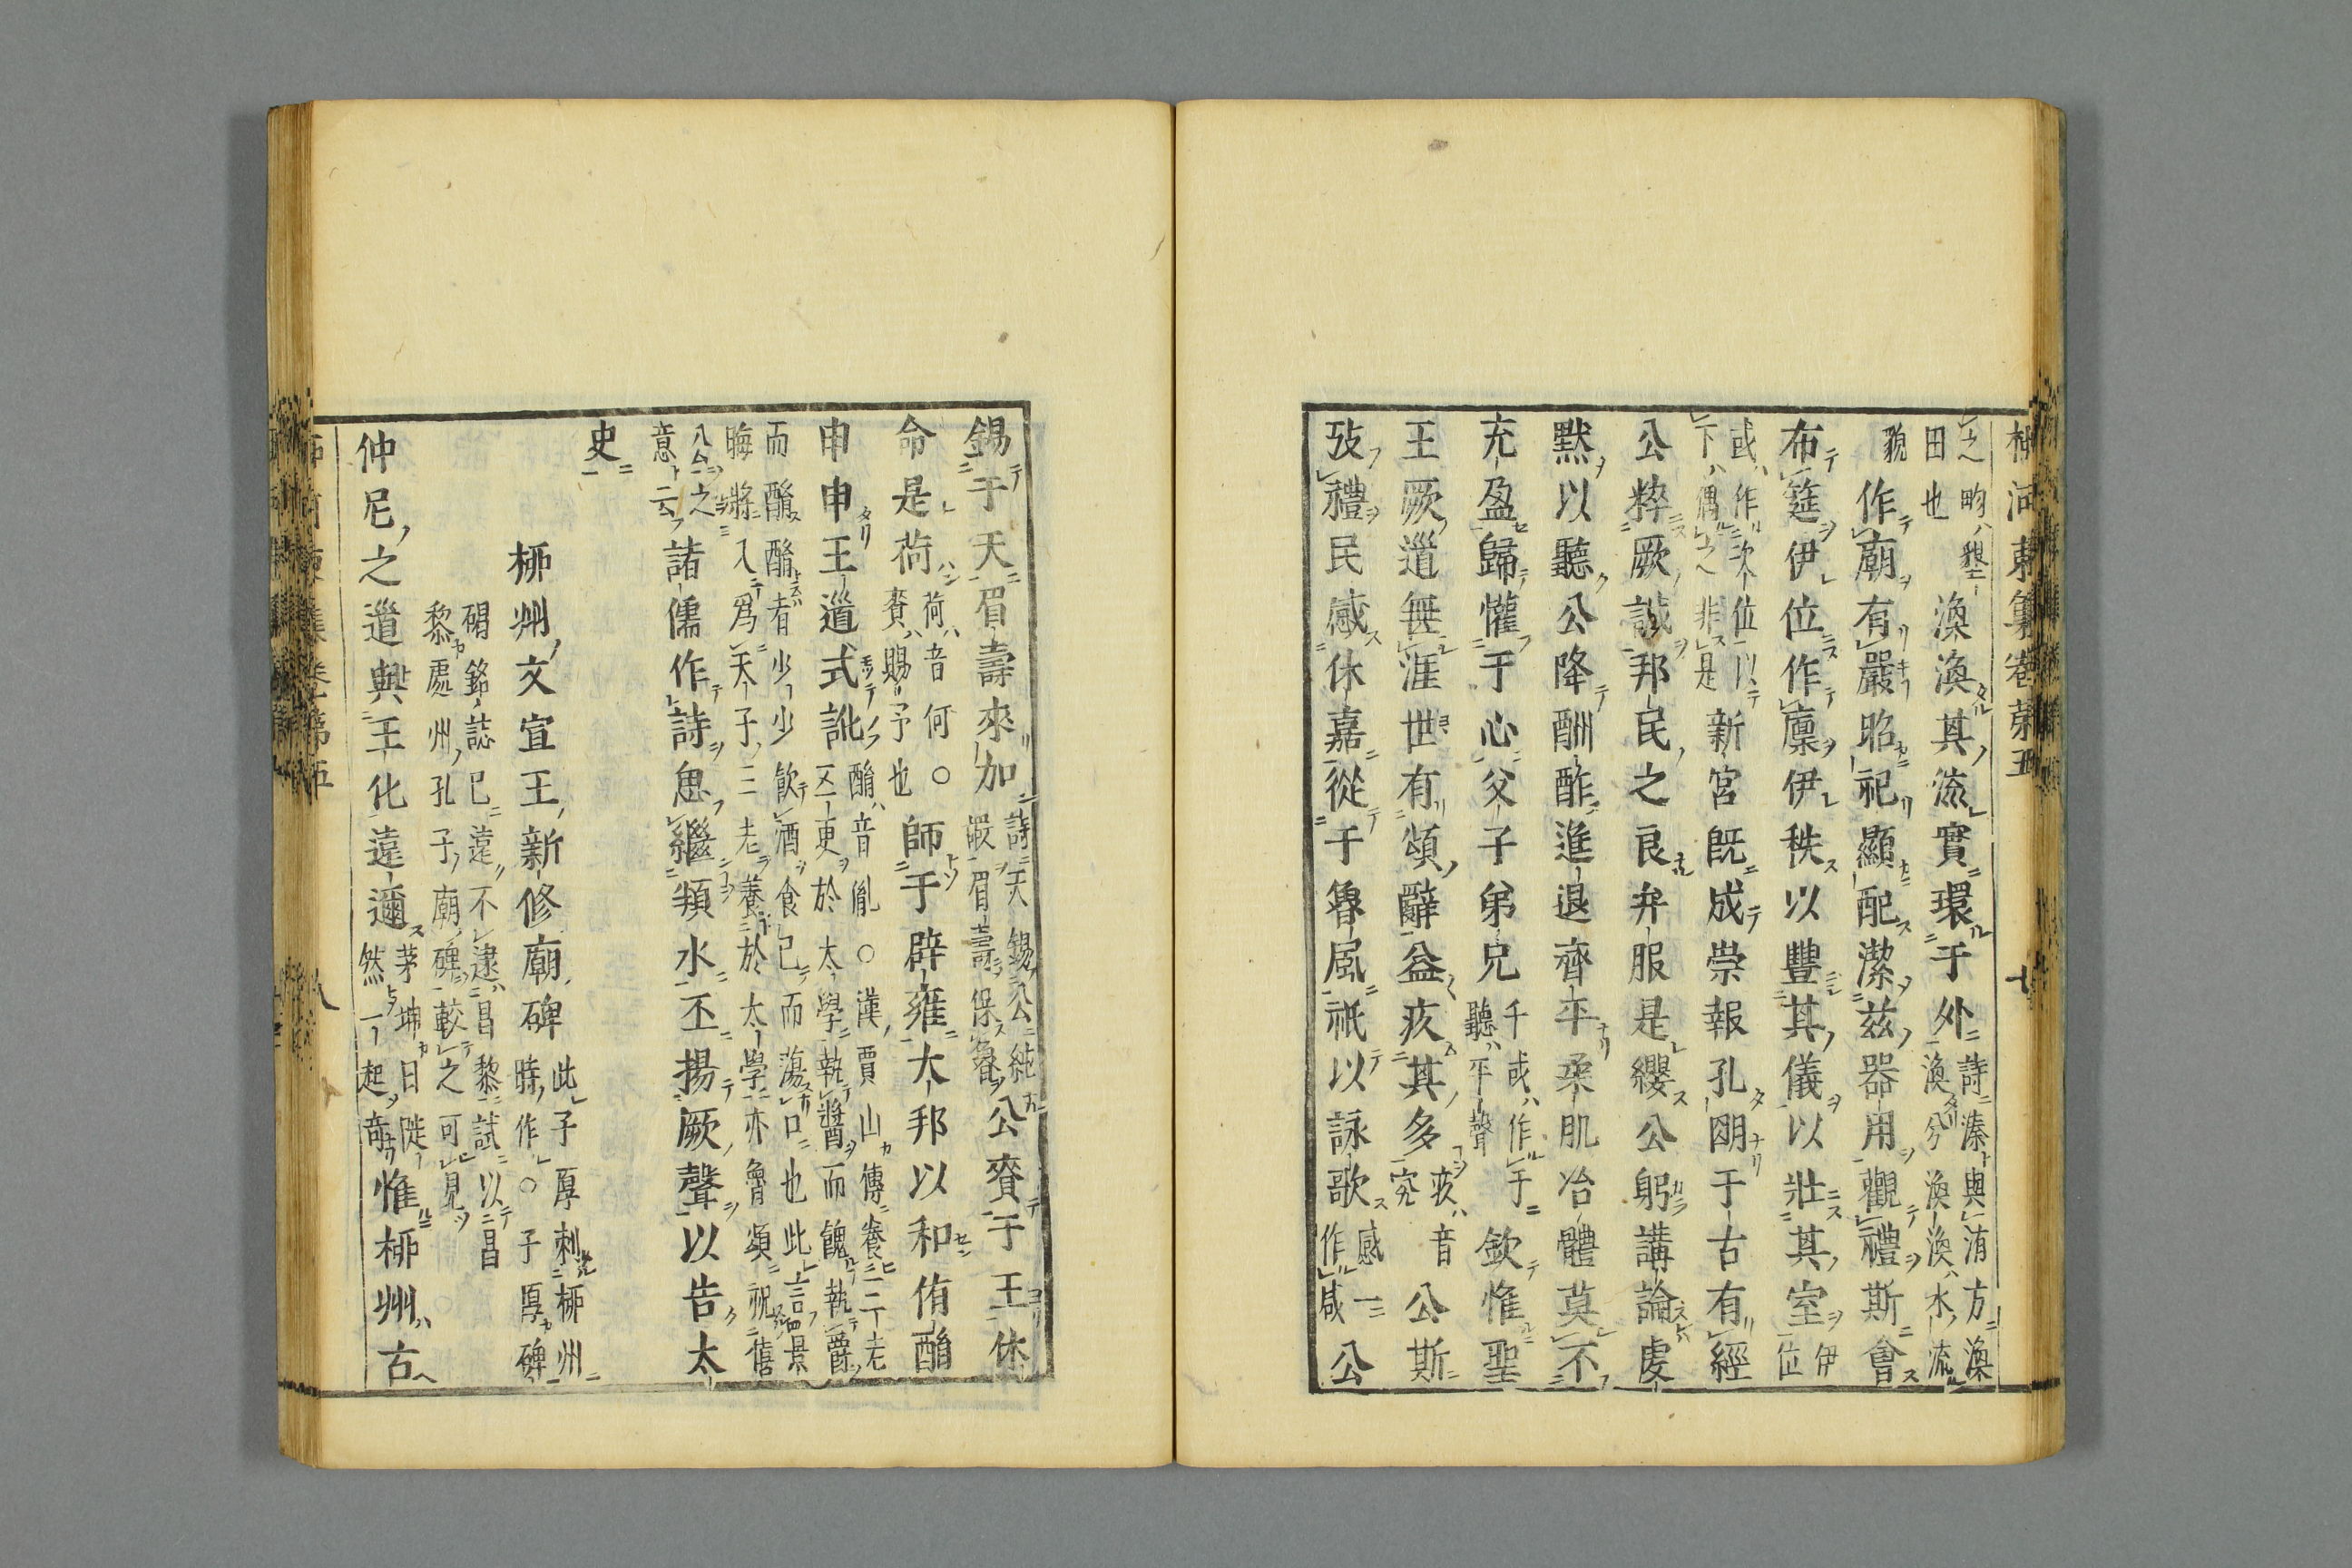 柳河東集卷第五 七
之畇ハ墾
田也 渙渙其流實環于外 詩溱與洧方渙
渙兮渙渙水流
貌 作廟有嚴昭祀顯配潔茲器用觀禮斯會
布筵伊位作廩伊秩以豐其儀以壯其室 伊位
或作次位以
下偶之非是 新宮既成崇報孔明于古有經
公粹厥誠邦民之良弁服是纓公躬講論虔
默以聽公降酬酢進退齊平柔肌冶體莫不
充盈歸懽于心父子弟兄 于或作于
聽平聲 欽惟聖
王厥道無涯世有頌辭益疚其多 疚音
究 公斯
攷禮民感休嘉從于魯風祇以詠歌 感一
作咸 公
錫于天眉壽來加 詩天錫公純
嘏眉壽保魯 公賚于王休
命是荷 荷音何○
賚賜予也 師于辟雍大邦以和侑酳
申申王道式訛 酳音胤○漢賈山傳養三老
五更於太學執醬而餽執爵
而酳酳者少少飲酒食已而蕩口也此言景
晦將入為天子三老養於太學亦魯頌祝僖
公之
意云 諸儒作詩思繼頖水丕揚厥聲以告太
史
柳州文宣王新修廟碑 此子厚刺柳州
時作○子厚碑
碣銘誌已遠不逮昌黎試以昌
黎處州孔子廟碑較之可見
仲尼之道與王化遠邇 茅坤曰陡
然一起奇 惟柳州古